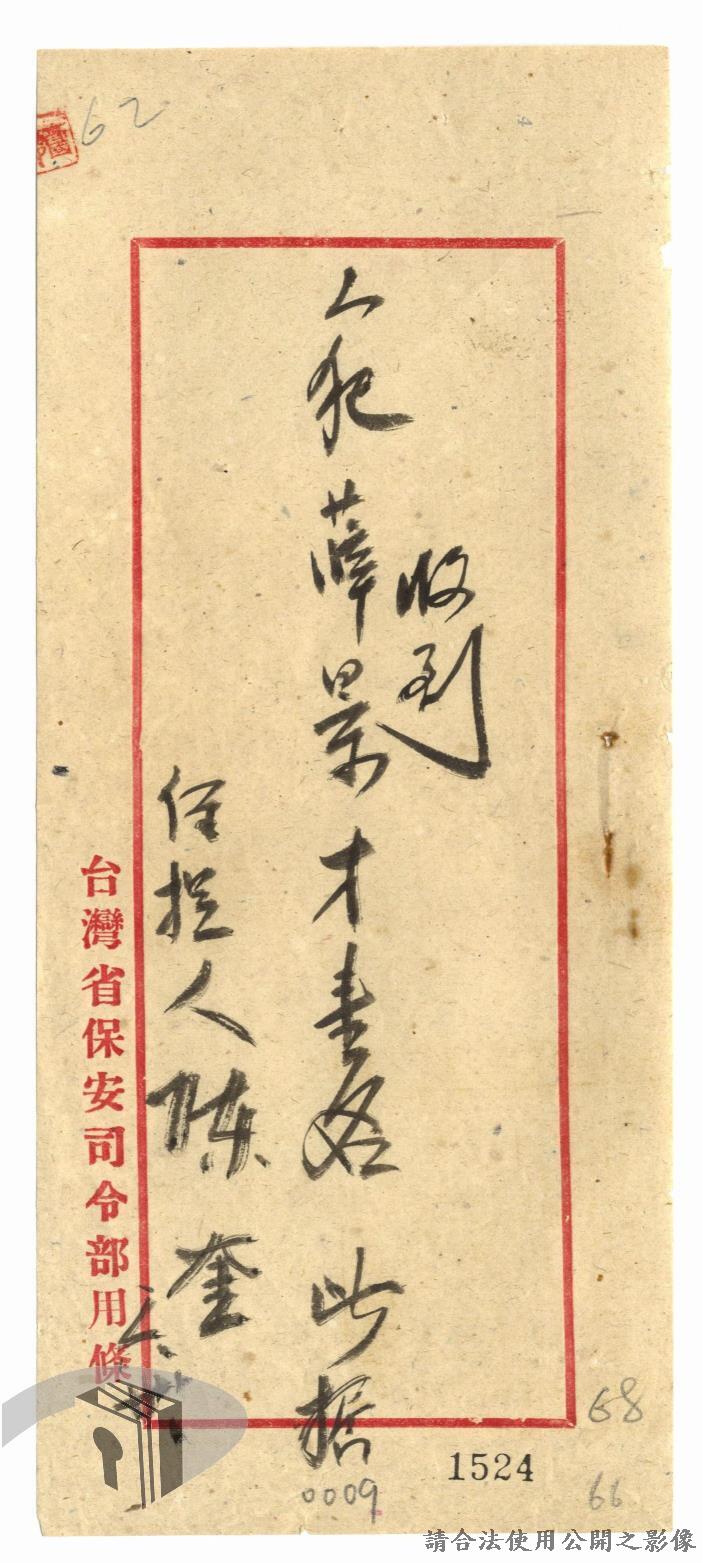 62
收到
人犯薛景才壹名 此據
经提人陈奎
台灣省保安司令部用條
68
1524
0009
66
請合法使用公開之影像